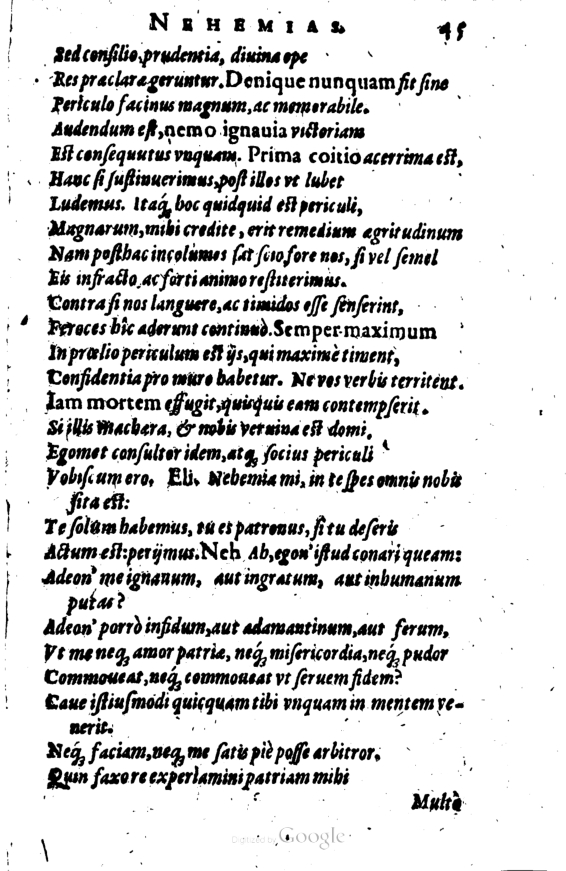 NEHEMIAS. 45
Sed consilio, prudentia, diuina ope
Res praclara geruntur. Denique nunquam fit sine
Periculo facinus magnum, ac memorabile.
Audendum est, nemo ignauia victoriam
Est consequutus vnquam. Prima coitio acerrima est,
Hanc si sustinuerimus, post illos vt lubet
Ludemus. Itaq́ hoc quidquid est periculi,
Magnarum, mihi credite, erit remedium agritudinum
Nam posthac incolumes sat scio, fore nos, si vel semel
Eis infracto, ac forti animo restiterimus.
Contra si nos languere, ac timidos esse senserint,
Feroces hîc aderunt continuò. Semper maximum
In prœlio periculum est ijs, qui maximè timent,
Confidentia pro muro habetur. Ne vos verbis territent.
Iam mortem effugit, quisquis eam contempserit.
Si illis machara, & nobis veruina est domi,
Egomet consultor idem, atq́ socius periculi
Vobiscum ero. Eli. Nehemia mi, in te spes omnis nobis
sita est:
Te solùm habemus, tù es patronus, si tu deseris
Actum est: perijmus. Neh Ab, egon' istud conari queam:
Adeon' me ignauum, aut ingratum, aut inhumanum
putas?
Adeon' porrò infidum, aut adamantinum, aut ferum,
Vt me neq́ amor patriæ, neq́ misericordia, neq́ pudor
Commoueat, neq́ commoueat vt seruem fidem?
Caue istiusmodi quicquam tibi vnquam in mentem ve-
nerit.
Neq́ faciam, neq́ me satis piè posse arbitror.
Quin faxo re experiamini patriam mihi
Multò
Digitized by Google